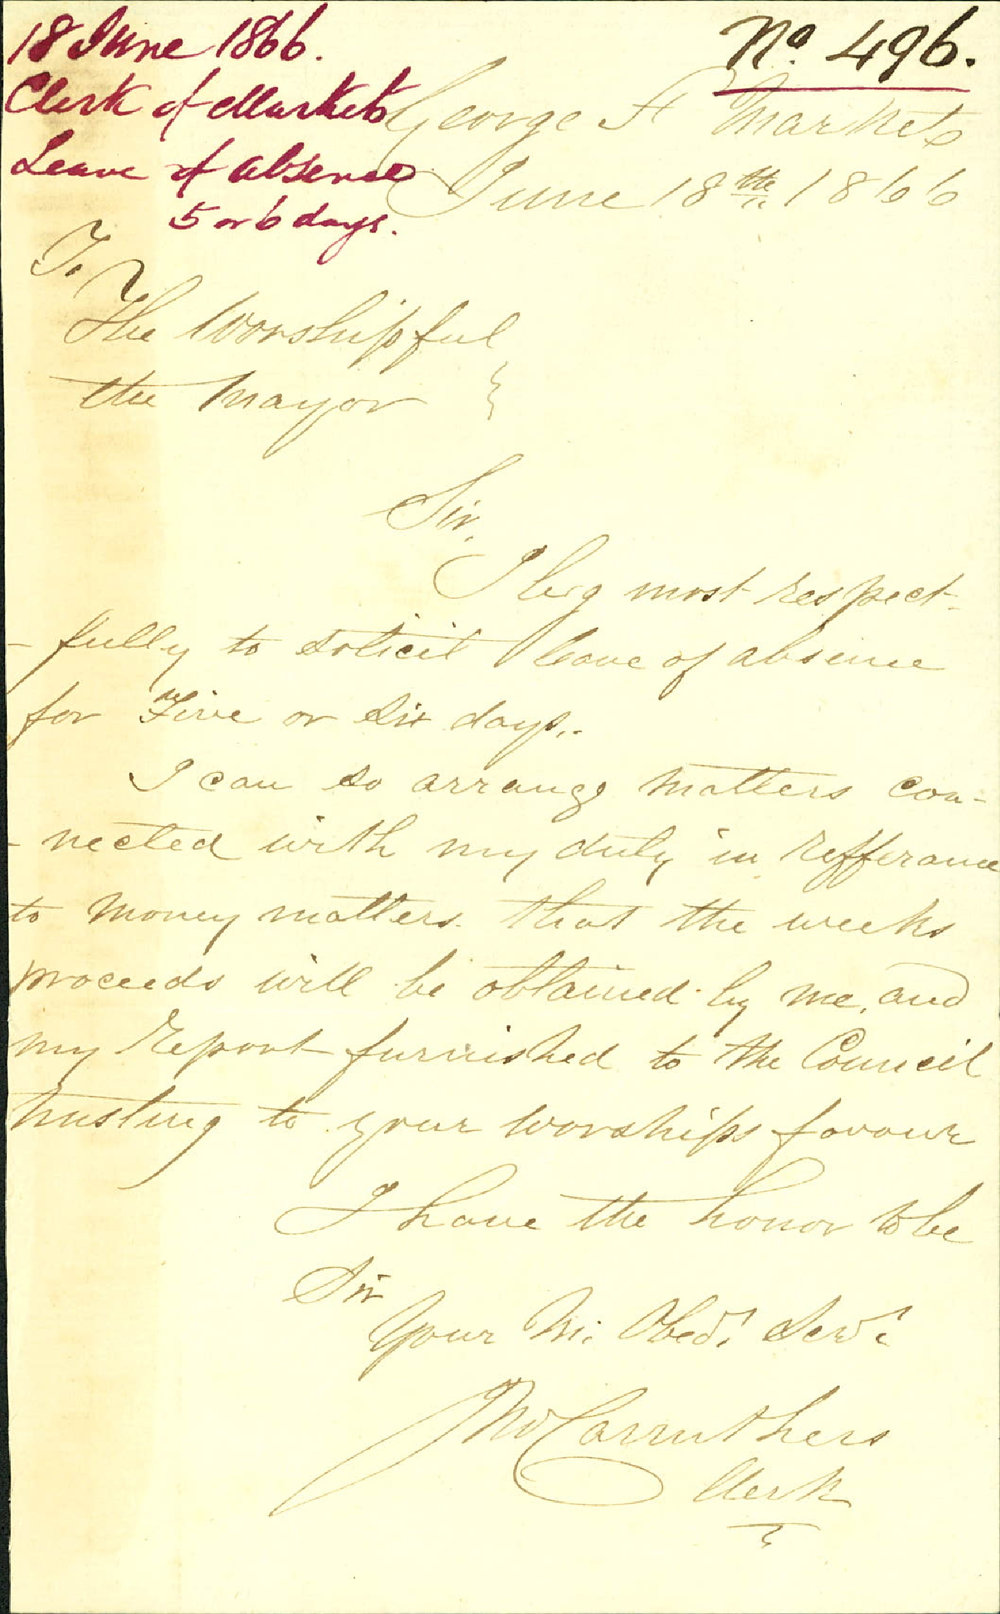 18 June 1866.
Clerk of Markets
Leave of absence
5 or 6 days.
No. 496.
George St Markets
June 18th 1866
To
The Worshipful
the Mayor
Sir,
I beg most respect-
-fully to solicit leave of absence
for Five or Six days,.
I can so arrange matters con-
-nected with my duty in refferance
to money matters. that the weeks
proceeds will be obtained by me, and
my Report furnished to the Council
trusting to your worships favour
I have the honor to be
Sir
Your M. Obed. Serv.
Jno Carruthers
Clerk